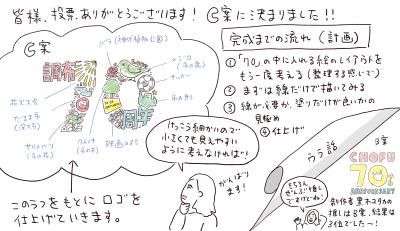 皆様、投票ありがとうございます！
Ⓒ案に決まりました!!
Ⓒ案
バラ（神代植物公園）
メジロ（市の鳥）
サッカー
調布
市の木
花火大会
70
周年
たまる（多摩川）
サルスベリ（市の花）
クスノキ（市の木）
映画のまち
このラフをもとにロゴを
仕上げていきます。
けっこう細かいので
小さくても見やすい
ように考えなければ！
がんばり
ます！
完成までの流れ（計画）
①「70」の中に入れる絵のレイアウトを
もう一度考える（整理する感じで）
②まずは線だけで描いてみる
③線が必要か、塗りだけが良いかの
見極め
④仕上げ
うら話
もちろん
ぜんぶ推し
ですけどね！
B案
CHOFU
70th
ANNIVERSARY
制作者 黒木ユタカの
推しはB案、結果は
3位でした〜！